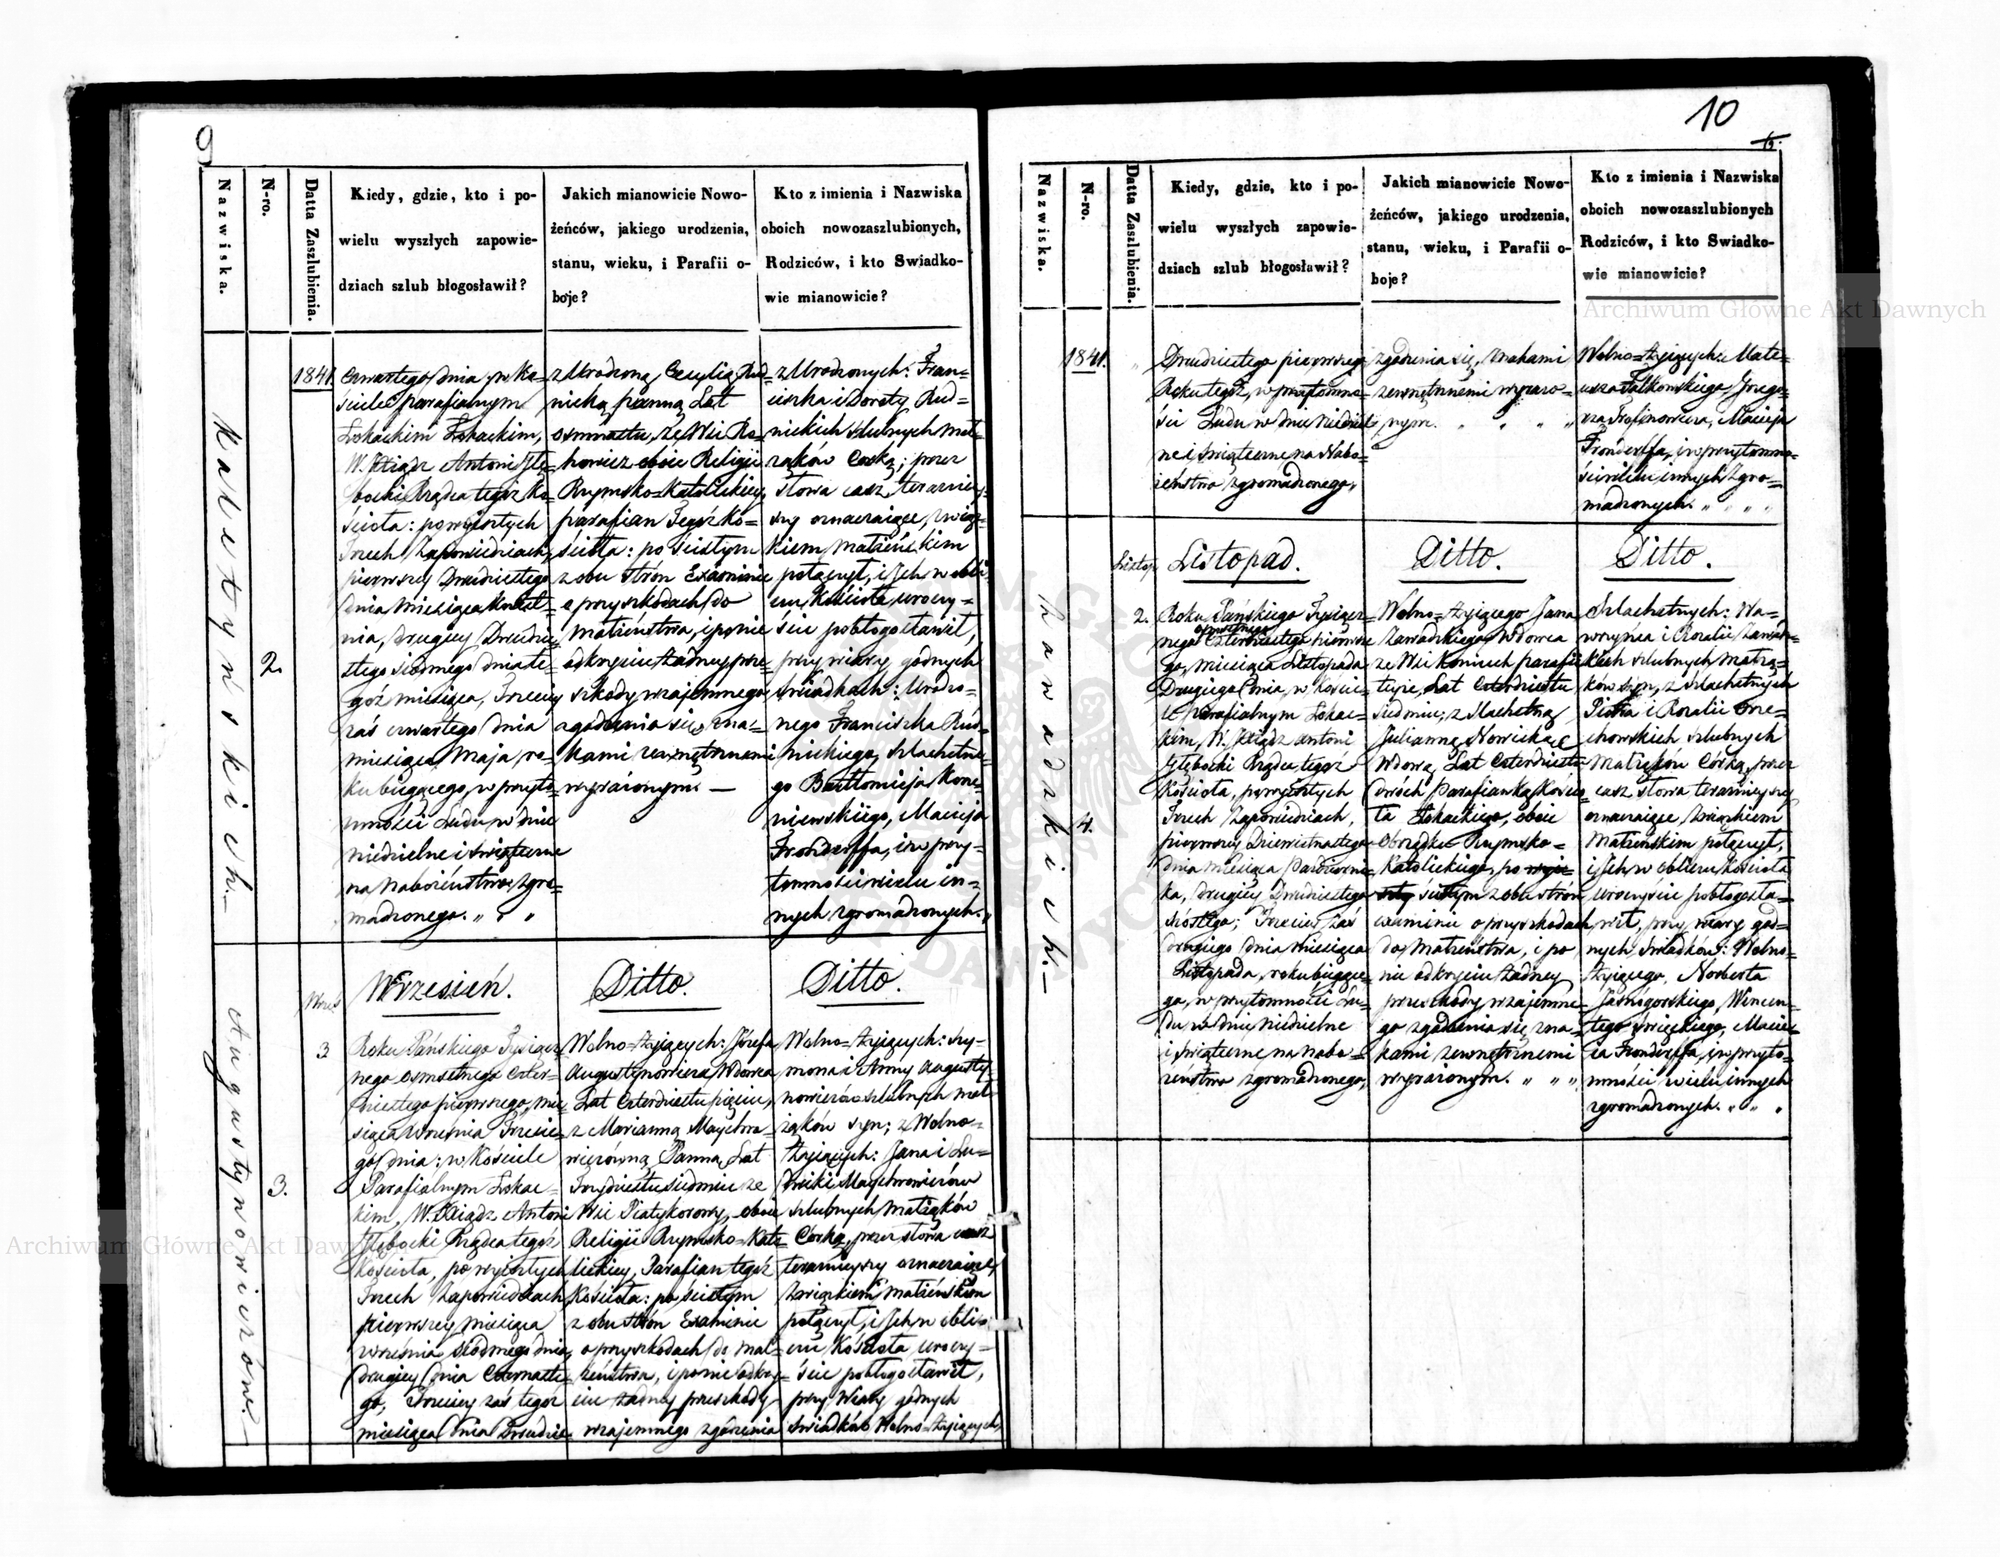 9
Nazwiska.
N-ro.
Datta Zaszlubienia.
Kiedy, gdzie, kto i po-
wielu wyszłych zapowie-
dziach szlub błogosławił?
Jakich mianowicie Nowo-
żeńców, jakiego urodzenia,
stanu, wieku, i Parafii o-
boje?
Kto z imienia i Nazwiska
oboich nowozaszlubionych,
Rodziców, i kto Swiadko-
wie mianowicie?
Kalętyńskich.
2.
1841.
czwartego dnia w Ko-
ściele parafialnym
Łokackim Łokackim,
W. Xiądz Antoni Głę-
bocki Rządca tegoż Ko-
ścioła: po wyszłych
Trzech Zapowiedziach,
pierwszey Dwudziestego
dnia miesiąca Kwiet-
nia, drugiey Dwudzie-
stego siódmego dnia te-
goż miesiąca, Trzeciey
zaś czwartego dnia
miesiąca Maja, ro-
ku bieżącego, w przyto-
mności Ludu w dnie
niedzielne i świąteczne
na Nabożeństwo zgro-
madzonego. „ „ „
z Urodzoną Cecylią Rud-
nicką panną Lat
osmnastu, ze Wsi Ro-
howicz oboie Religii
Rzymsko=Katolickiey,
parafian Tegoż Ko=
ścioła: po ścisłym
z obu strón Examinie
o przyszkodach do
Matżeństwa, i po nie
odkryciu żadney prze-
szkody wzajemnego
zgodzenia się zna-
kami zewnętrznemi
wyrażonym. —
z Urodzonych: Fran-
ciszka i Doroty Rud-
nickich szlubnych Mał-
żąków Córką; przez
słowa czas teraźniey-
szy oznaczaiące, związ-
kiem Matżeńskim
połączył, i Ich w obli-
czu Kościoła uroczy-
ście pobłogosławił,
przy wiary godnych
Swiadkach: Urodzo-
nego Franciszka Rud-
nickiego, Szlachetne-
go Bartłomieja Kone-
niewskiego, Macieja
Frondorffa, i w przy-
tomności wielu in-
nych zgromadzonych. „
Wrzesień.
Ditto.
Ditto.
Wrześ.
3
Augustynowiczów.
3.
Roku Pańskiego Tysiącz-
nego osmsetnego czter-
dziestego pierwszego, mie-
siąca Września Trzecie-
go dnia: w Kościele
Parafialnym Łokac-
kim, W. Xiądz Antoni
Głębocki Rządca tegoż
Kościoła, po wyszłych
Trzech Zapowiedziach,
pierwszey miesiąca
września siódmego dnia
drugiey dnia Czternaste-
go, Trzeciey zaś tegoż
miesiąca dnia Dwudzie-
Wolno=żyjących: Józefa
Augustynowicza Wdowca
Lat Czterdziestu pięciu,
z Marianną Maychro-
wiczówną Panną Lat
Trzydziestu siedmiu ze
Wsi Piatykorowy, oboie
Religii Rzymsko=Kato-
lickiey, Parafian tegoż
Kościoła: po ścisłym
z obu strón Examinie
o przyszkodach do mał-
żeństwa, i po nie odkry-
ciu żadney przeszkody
wzajemnego zgodzenia
Wolno=żyjących: Szy-
mona i Anny Augusty-
nowiczów szlubnych mał-
żąków syn; z Wolno-
żyjących: Jana i Lu-
dwiki Maychrowiczów
szlubnych Matżąków
Córką, przez słowa czas
teraźnieyszy oznaczaiące,
Związkiem Matżeńskim
połączył, i Ich w obli-
czu Kościoła uroczy-
ście pobłogosławił,
przy Wiary godnych
Swiadkach Wolno=żyjących,
10
Nazwiska.
N-ro.
Datta Zaszlubienia.
Kiedy, gdzie, kto i po-
wielu wyszłych zapowie-
dziach szlub błogosławił?
Jakich mianowicie Nowo-
żeńców, jakiego urodzenia,
stanu, wieku, i Parafii o-
boje?
Kto z imienia i Nazwiska
oboich nowozaszlubionych
Rodziców, i kto Swiadko-
wie mianowicie?
1841.
Dwudziestego pierwszego
Roku tegoż, w przytomno-
ści Ludu w dnie Niedziel-
ne i świąteczne na Nabo-
żeństwo zgromadzonego,
zgodzenia się, znakami
zewnętrznemi wyrażo-
nym. „ „ „ „
Wolno=żyjących: Mate-
usza Falkowskiego, Grzego-
rza Trofinowicza, Macieja
Frondorffa, i w przytomno-
ści wielu innych zgro-
madzonych. „ „ „ „
Listop.
Listopad.
Ditto.
Ditto.
Zawadzkich.—
4.
2.
Roku Pańskiego Tysiącz-
nego osmsetnego Czterdziestego pierwsze
go, miesiąca Listopada
Drugiego dnia, w Koście-
le parafialnym Łokac-
kim, W. Xiądz Antoni
Głębocki Rządca tegoż
Kościoła, po wyszłych
Trzech Zapowiedziach,
pierwszey Dziewiętnastego
dnia miesiąca Październi-
ka, drugiey Dwudziestego
szóstego; Trzeciey zaś
drugiego dnia miesiąca
Listopada, roku bieżące-
go, w przytomności Lu-
du w dnie Niedzielne
i świąteczne na Nabo-
żeństwo zgromadzonego,
Wolno=żyjącego Jana
Zawadzkiego, Wdowca
ze Wsi Koniuch parafii
tejże, Lat Czterdziestu
siedmiu; z szlachetną
Julianną Nowicką
Wdową Lat Czterdziestu
dwóch Parafianką Kościo-
ła Łokackiego, oboie
obrządku Rzymsko-
Katolickiego, po
ścisłym z obu strón
examinie o przyszkodach
do Matżeństwa, i po
nie odkryciu żadney
przeszkody wzajemne-
go zgodzenia się zna-
kami zewnętrznemi
wyrażonym. „ „ „
Szlachetnych: Wa-
wrzyńca i Rozalii Zawadz-
kich szlubnych Matżą-
ków syn, z szlachetnych
Piotra i Rozalii Orze-
chowskich szlubnych
Matżąków Córką, przez
czas słowa teraźnieyszy
oznaczaiące, Związkiem
Matżeńskim połączył,
i Ich w obliczu Kościoła
uroczyście pobłogosła-
wił, przy wiary god-
nych Swiadków: Wolno-
żyjącego, Norberta
Jasnogorskiego, Wincen-
tego Święckiego, Macie-
ja Frondorffa, i w przyto-
mności wielu innych
zgromadzonych. „ „ „
Archiwum Główne Akt Dawnych
Archiwum Główne Akt Dawnych